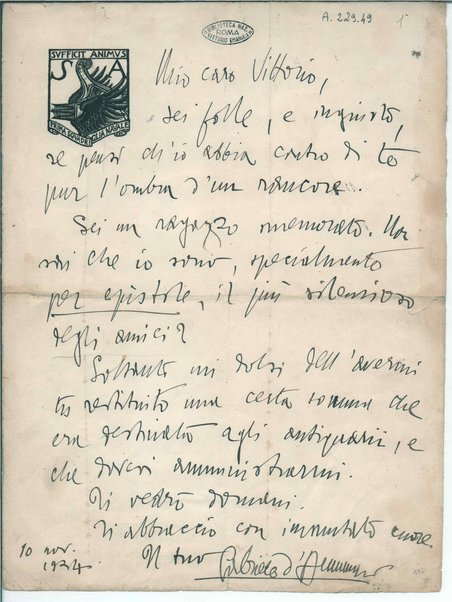 A. 229.49
1
BIBLIOTECA NAZ.
ROMA
VITTORIO EMANUELE
SVFFICIT ANIMVS
S A
PRIMA SQVADRIGLIA NAVALE
Mio caro Vittorio,
sei folle, e ingiusto,
se pensi ch'io abbia contro di te
pur l'ombra d'un rancore.
Sei un ragazzo smemorato. Non
sai che io sono, specialmente
per epistole, il più silenzioso
degli amici?
Soltanto mi dolsi dell'avermi
tu restituito una certa somma che
era destinata agli antiquarii, e
che dovevi amministrarmi.
Ti vedrò domani.
Ti abbraccio con immutato cuore.
Il tuo
Gabriele d'Annunzio
10 nov.
1924